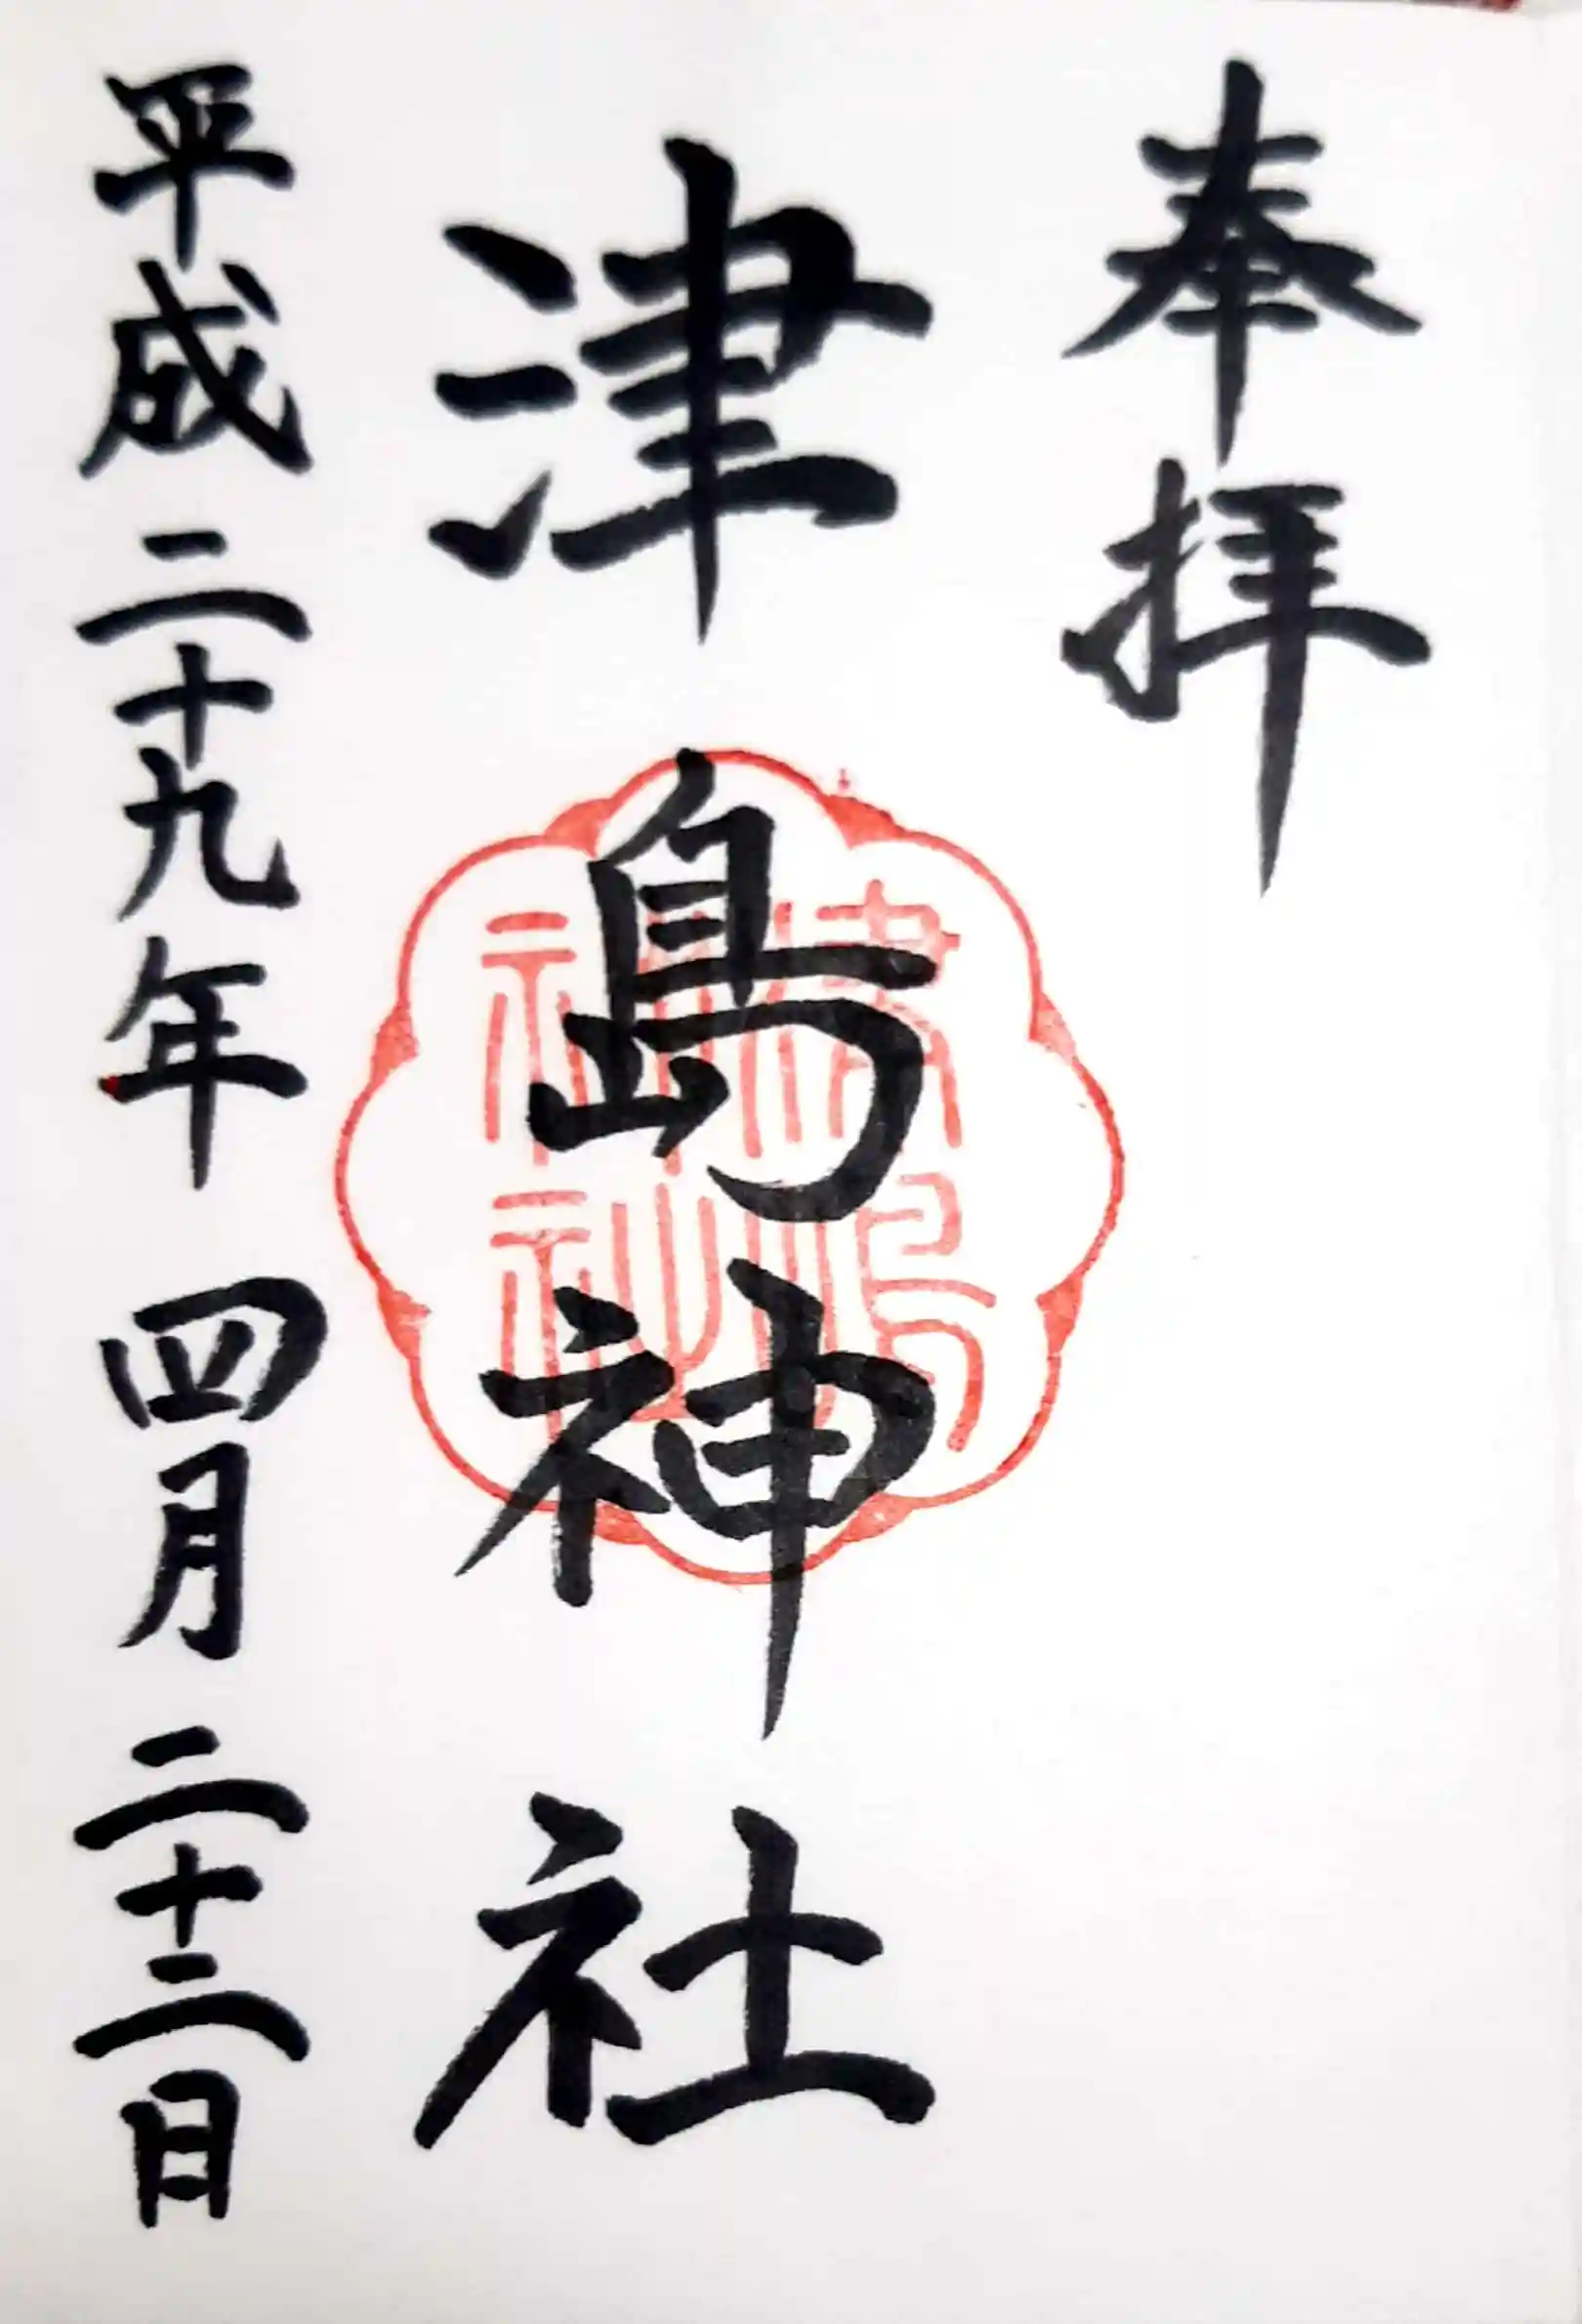 奉拝
津島神社
平成二十九年 四月 二十二日
津島
神社